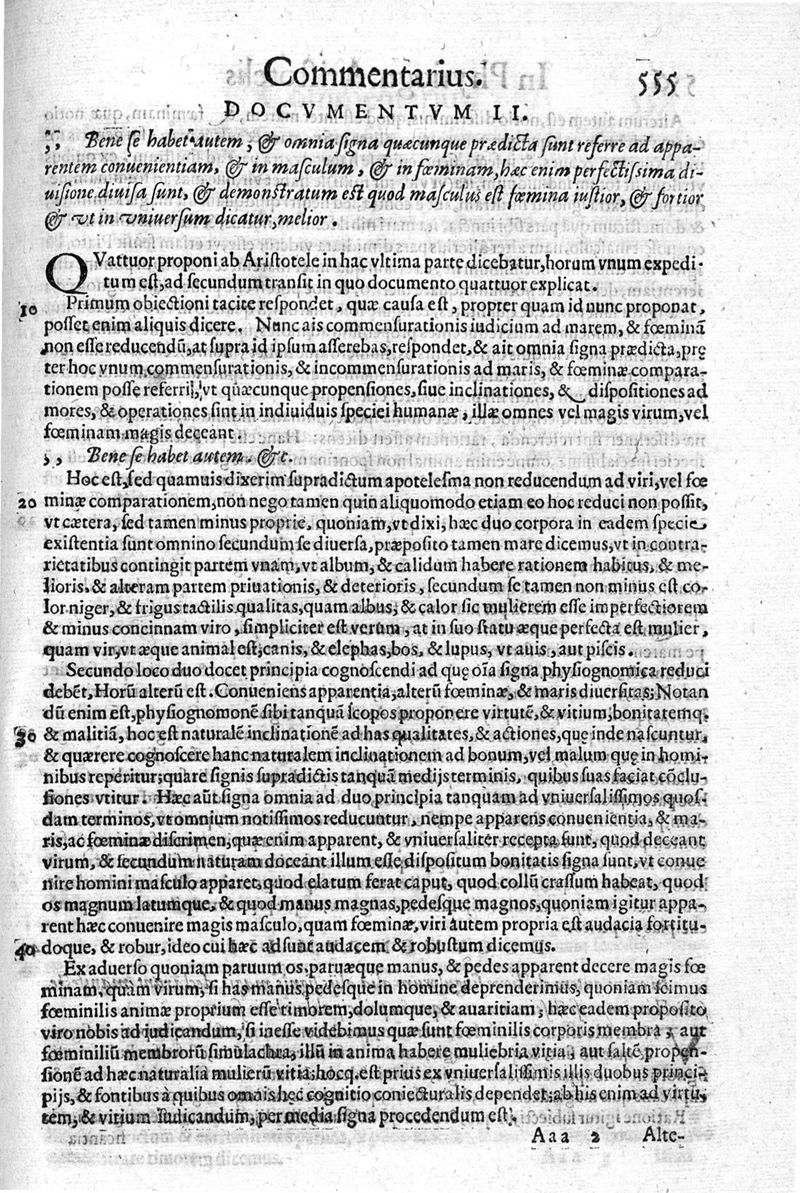 Commentarius. 555
DOCVMENTVM II.
,, Bene se habet autem, & omnia signa quæcunque prædicta sunt referre ad appa-
rentem convenientiam, & in masculum, & in fœminam, hæc enim perfectissima di-
uisione diuisa sunt, & demonstratum est quod masculus est fœmina iustior, & fortior
& vt in vniversum dicatur, melior.
QVattuor proponi ab Aristotele in hac vltima parte dicebatur, horum vnum expedi-
tum est, ad secundum transit in quo documento quattuor explicat.
10 Primum obiectioni tacite respondet, quæ causa est, propter quam id nunc proponat,
posset enim aliquis dicere. Nunc ais commensurationis iudicium ad marem, & fœminā
non esse reducendū, at supra id ipsum asserebas, respondet, & ait omnia signa prædicta, prę
ter hoc vnum commensurationis, & incommensurationis ad maris, & fœminæ compara-
tionem posse referri, vt quæcunque propensiones, siue inclinationes, & dispositiones ad
mores, & operationes sint in indiuiduis speciei humanæ, illæ omnes vel magis virum, vel
fœminam magis deceant.
,, Bene se habet autem. &c.
Hoc est, sed quamuis dixerim supradictum apotelesma non reducendum ad viri, vel fœ
20 minæ comparationem, non nego tamen quin aliquomodo etiam eo hoc reduci non possit,
vt cætera, sed tamen minus proprie, quoniam, vt dixi, hæc duo corpora in eadem specie
existentia sunt omnino secundum se diversa, præposito tamen mare dicemus, vt in contra-
rietatibus contingit partem vnam, vt album, & calidum habere rationem habitus, & me-
lioris. & alteram partem priuationis, & deterioris, secundum se tamen non minus est co-
lor niger, & frigus tactilis qualitas, quam albus, & calor sic mulierem esse imperfectiorem
& minus concinnam viro, simpliciter est verum, at in suo statu æque perfecta est mulier,
quam vir, vt æque animal est, canis, & elephas, bos, & lupus, vt auis, aut piscis.
Secundo loco duo docet principia cognoscendi ad quę oīa signa physiognomica reduci
debēt, Horū alterū est. Conveniens apparentia, alterū fœminæ, & maris diversitas; Notan
dū enim est, physiognomonē sibi tanquā scopos proponere virtutē, & vitium, bonitatemq.
30 & malitiā, hoc est naturalē inclinationē ad has qualitates, & actiones, quę inde nascuntur,
& quærere cognoscere hanc naturalem inclinationem ad bonum, vel malum quę in homi-
nibus reperitur; quare signis supradictis tanquā medijs terminis, quibus suas faciat cōclu-
siones vtitur. Hæc aūt signa omnia ad duo principia tanquam ad vniversalissimos quos-
dam terminos, vt omnium notissimos reducuntur, nempe apparens convenientia, & ma-
ris, ac fœminæ discrimen, quæ enim apparent, & vniversaliter recepta sunt, quod deceant
virum, & secundum naturam doceant illum esse dispositum bonitatis signa sunt, vt conue
nire homini masculo apparet, quod elatum ferat caput, quod collū crassum habeat, quod
os magnum latumque, & quod manus magnas, pedesque magnos, quoniam igitur appa-
rent hæc convenire magis masculo, quam fœminæ, viri autem propria est audacia fortitu-
40 doque, & robur, ideo cui hæc adsunt audacem & robustum dicemus.
Ex adverso quoniam paruum os, paruæque manus, & pedes apparent decere magis fœ
minam, quam virum, si has manus pedesque in homine deprenderimus, quoniam scimus
fœminilis animæ proprium esse timorem, dolumque, & avaritiam, hæc eadem proposito
viro nobis ad iudicandum, si inesse videbimus quæ sunt fœminilis corporis membra, aut
fœminiliū membrorū simulachra, illū in anima habere muliebria vitia, aut saltē propen-
sionē ad hæc naturalia mulierū vitia; hocq. est prius ex vniversalissimis illis duobus princi-
pijs, & fontibus à quibus omnis hec cognitio coniecturalis dependet, ab his enim ad virtu-
tem, & vitium Iudicandum, per media signa procedendum est.
Aaa 2 Alte-